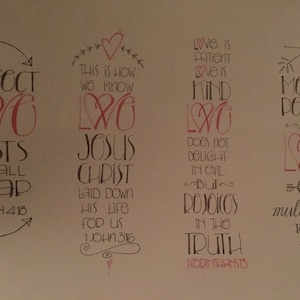 FECT
OVE
STS
ALL
AR
N 4:18
THIS IS HOW
WE KNOW
LOVE
JESUS
CHRIST
LAID DOWN
HIS LIFE
FOR US
1 JOHN 3:16
LOVE IS
PATIENT
LOVE IS
KIND
LOVE
DOES NOT
DELIGHT
IN EVIL
BUT
REJOICES
IN THE
TRUTH
1 CORINTHIANS 13
LO
mul